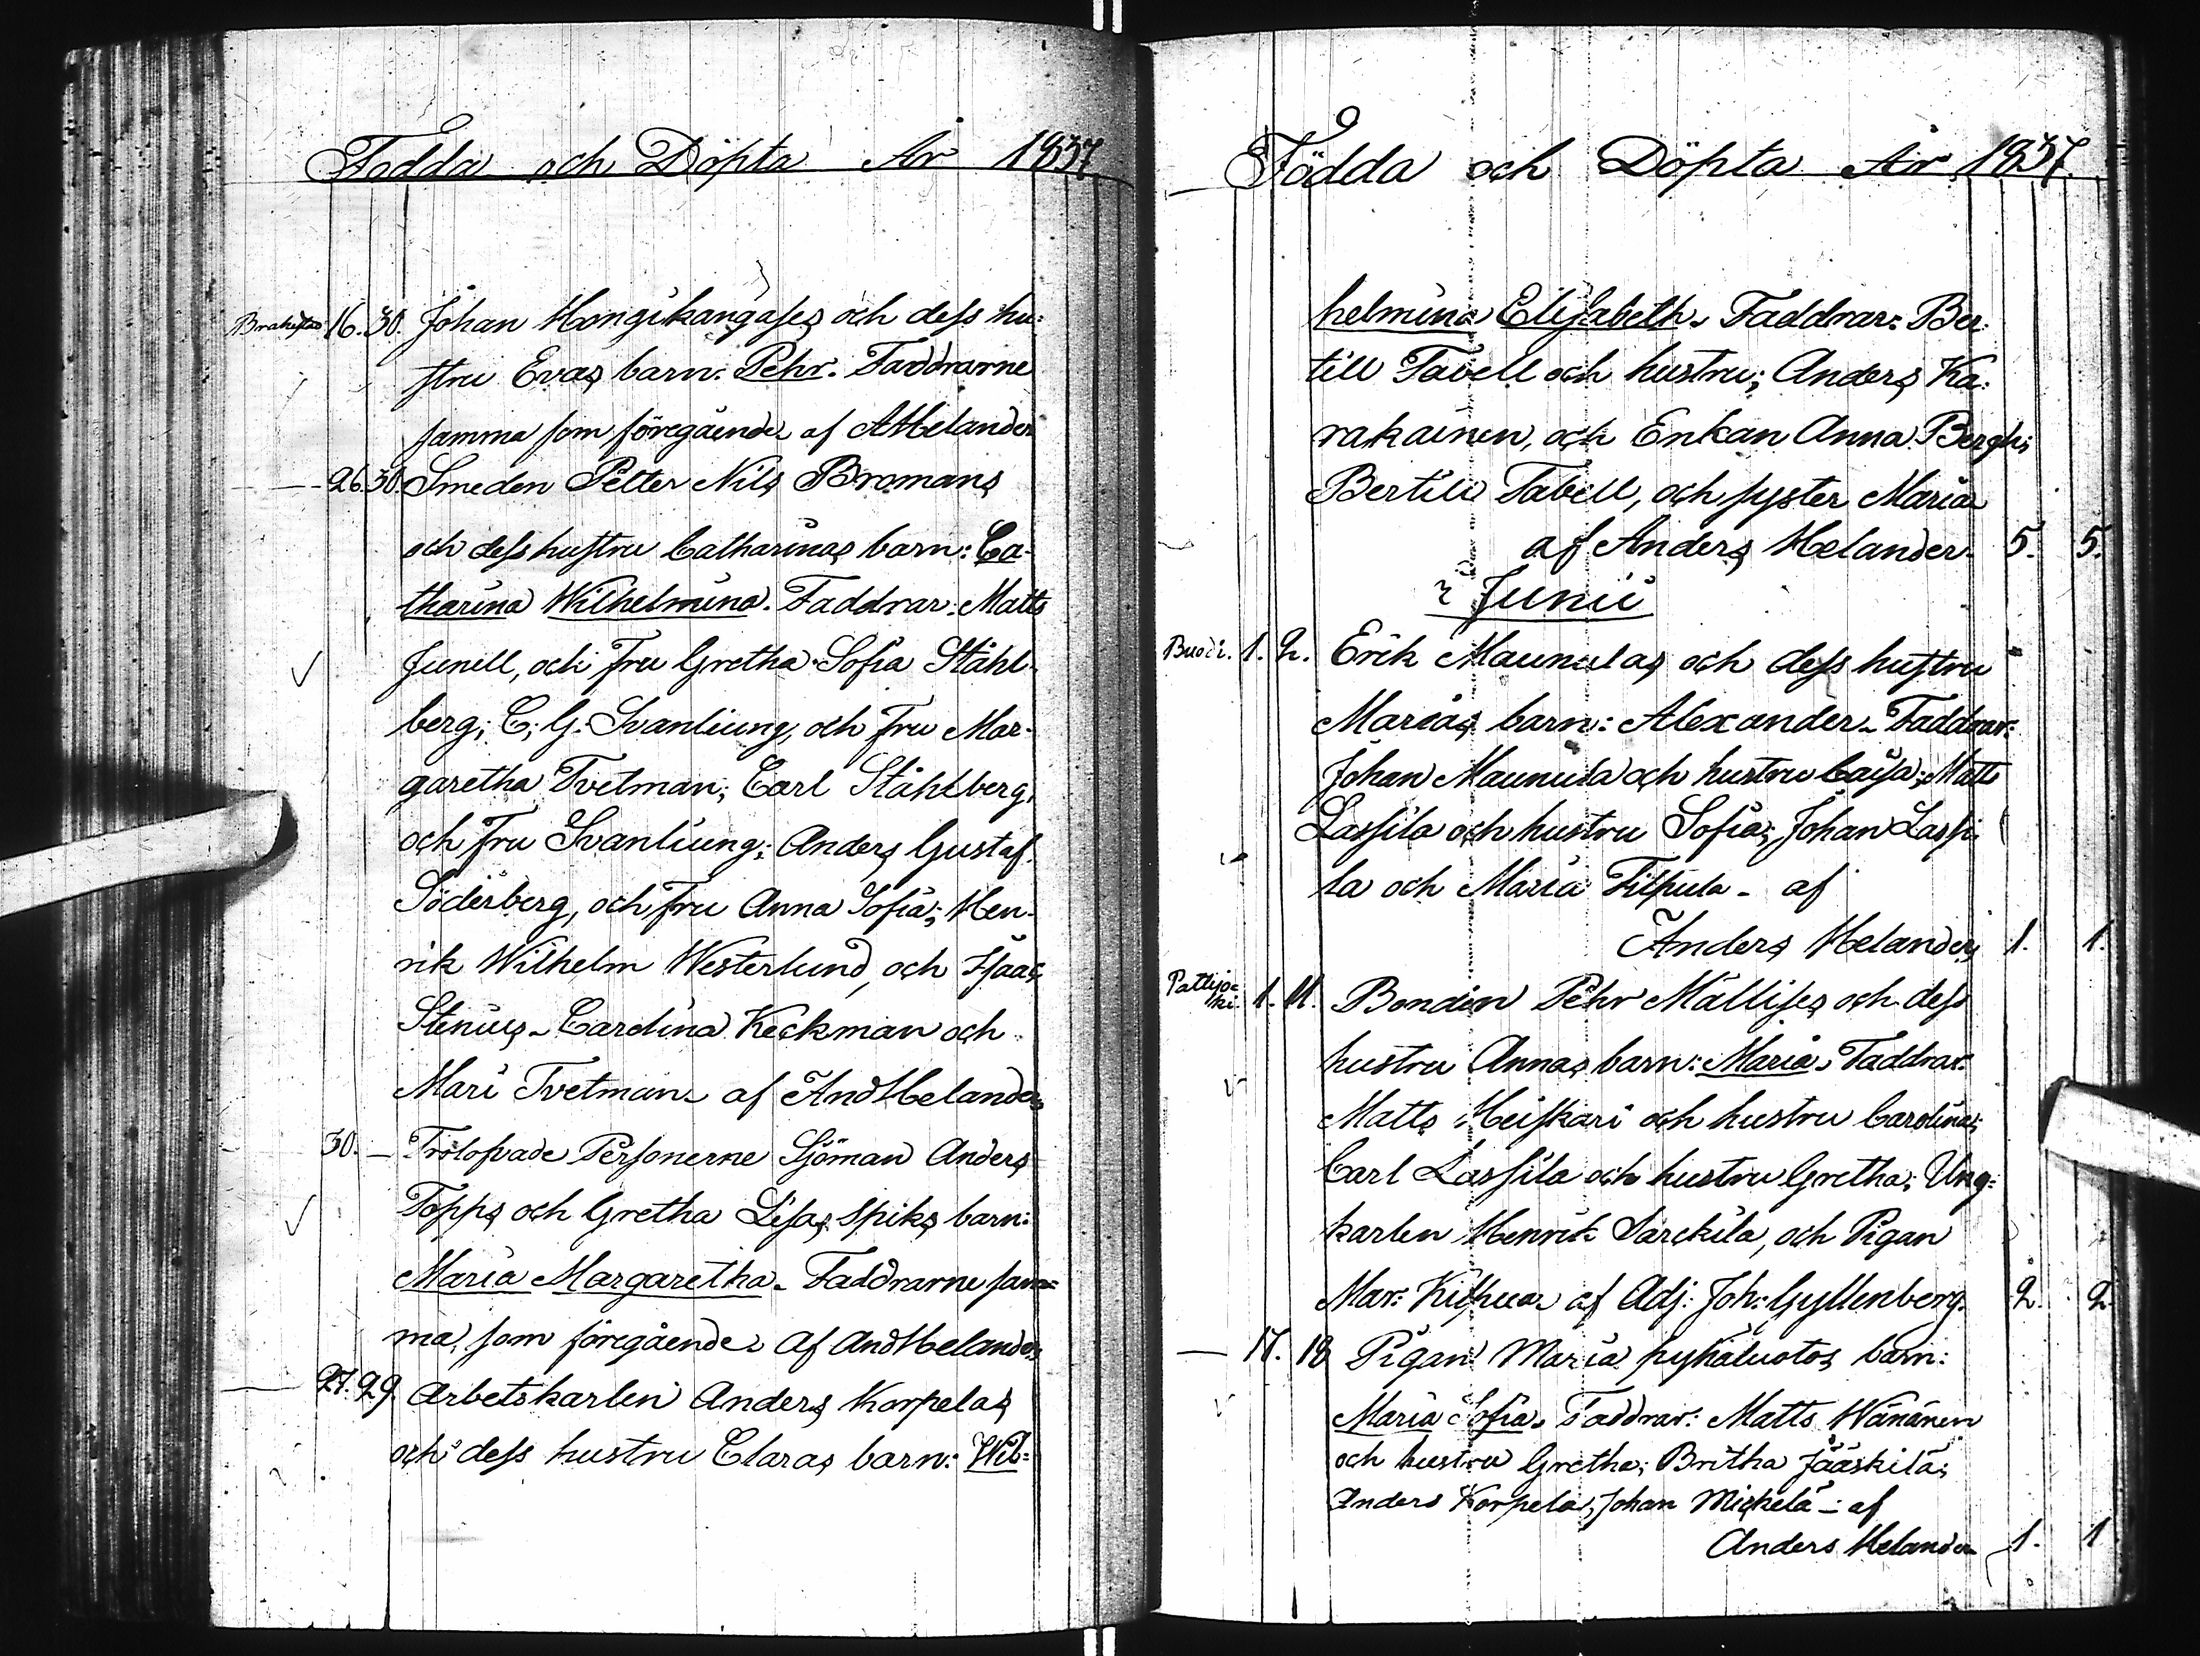 Födda och Döpta År 1837
Brahestad 16. 30. Johan Hongikangases och dess hu:
stru Evas barn: Pehr. Faddrarne
samma som föregående af AHelander
26. 30. Smeden Petter Nils Bromans
och dess hustru Catharinas barn: Ca-
tharina Wilhelmina. Faddrar: Matts
Junell, och Fru Gretha Sofia Ståhl-
berg; C. G. Svanliung, och Fru Mar-
garetha Tvetman; Carl Ståhlberg,
och Fru Svanliung; Anders Gustaf
Söderberg, och Fru Anna Sofia; Hen-
rik Wilhelm Westerlund, och Isaac
Stenius - Carolina Keckman och
Mari Tvetman - af AndHelander
30. - Trolofvade Personerne Sjöman Anders
Topps och Gretha Lisas Spiks barn:
Maria Margaretha - Faddrarne sam-
ma, som föregående. Af AndHelander
27. 29. Arbetskarlen Anders Korpelas
och dess hustru Claras barn: Wil=
Födda och Döpta År 1837.
helmina Elisabeth. Faddrar: Ber-
till Tabell och hustru; Anders Ka-
rakainen, och Enkan Anna Bergh;
Bertill Tabell, och syster Maria
af Anders Helander. 5. 5.
Junii
1. 2. Erik Maunulas och dess hustru
Marias barn: Alexander - Faddrar:
Johan Maunula och hustru Caisa; Matts
Lassila och hustru Sofia; Johan Lassi
la och Maria Filpula - af
Anders Helander 1. 1.
Pattijo-
ki. 1. 11. Bonden Pehr Mällises och dess
hustru Annas barn: Maria. Faddrar:
Matts Heiskari och hustru Carolina;
Carl Lassila och hustru Gretha; Ung=
karlen Henrik Sarckila, och Pigan
Mar: af Adj: Joh: Gyllenberg. 2. 2
17. 18 Pigan Maria pyhäluotos barn:
Maria Sofia. Faddrar: Matts Wänänen
och hustru Gretha; Britha Jääskilä;
Anders Korpela; Johan Mickelä - af
Anders Helander 1. 1